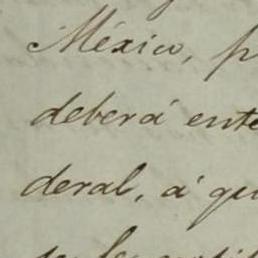 México, p
deberá ente
deral, á qu